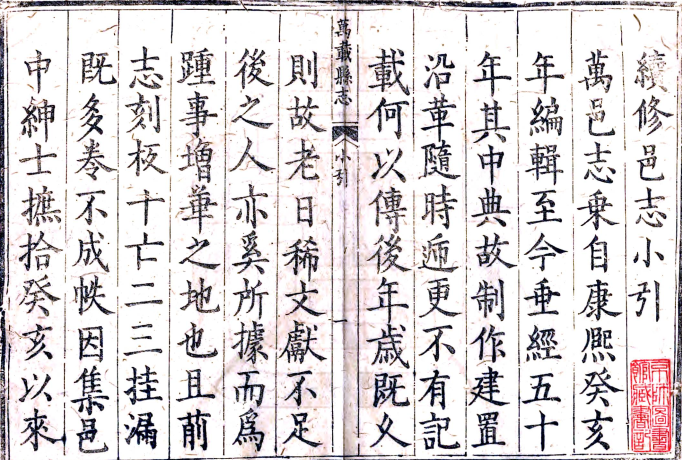 續修邑志小引
萬邑志乗自康熈癸亥
年編輯至今垂經五十
年其中典故制作建置
沿革隨時遞更不有記
載何以傳後年歲既久
萬載縣志
小引
一
則故老日稀文獻不足
後之人亦奚所據而爲
踵事增華之地也且前
志刻板十亡二三挂漏
既多卷不成帙因集邑
中紳士摭拾癸亥以來